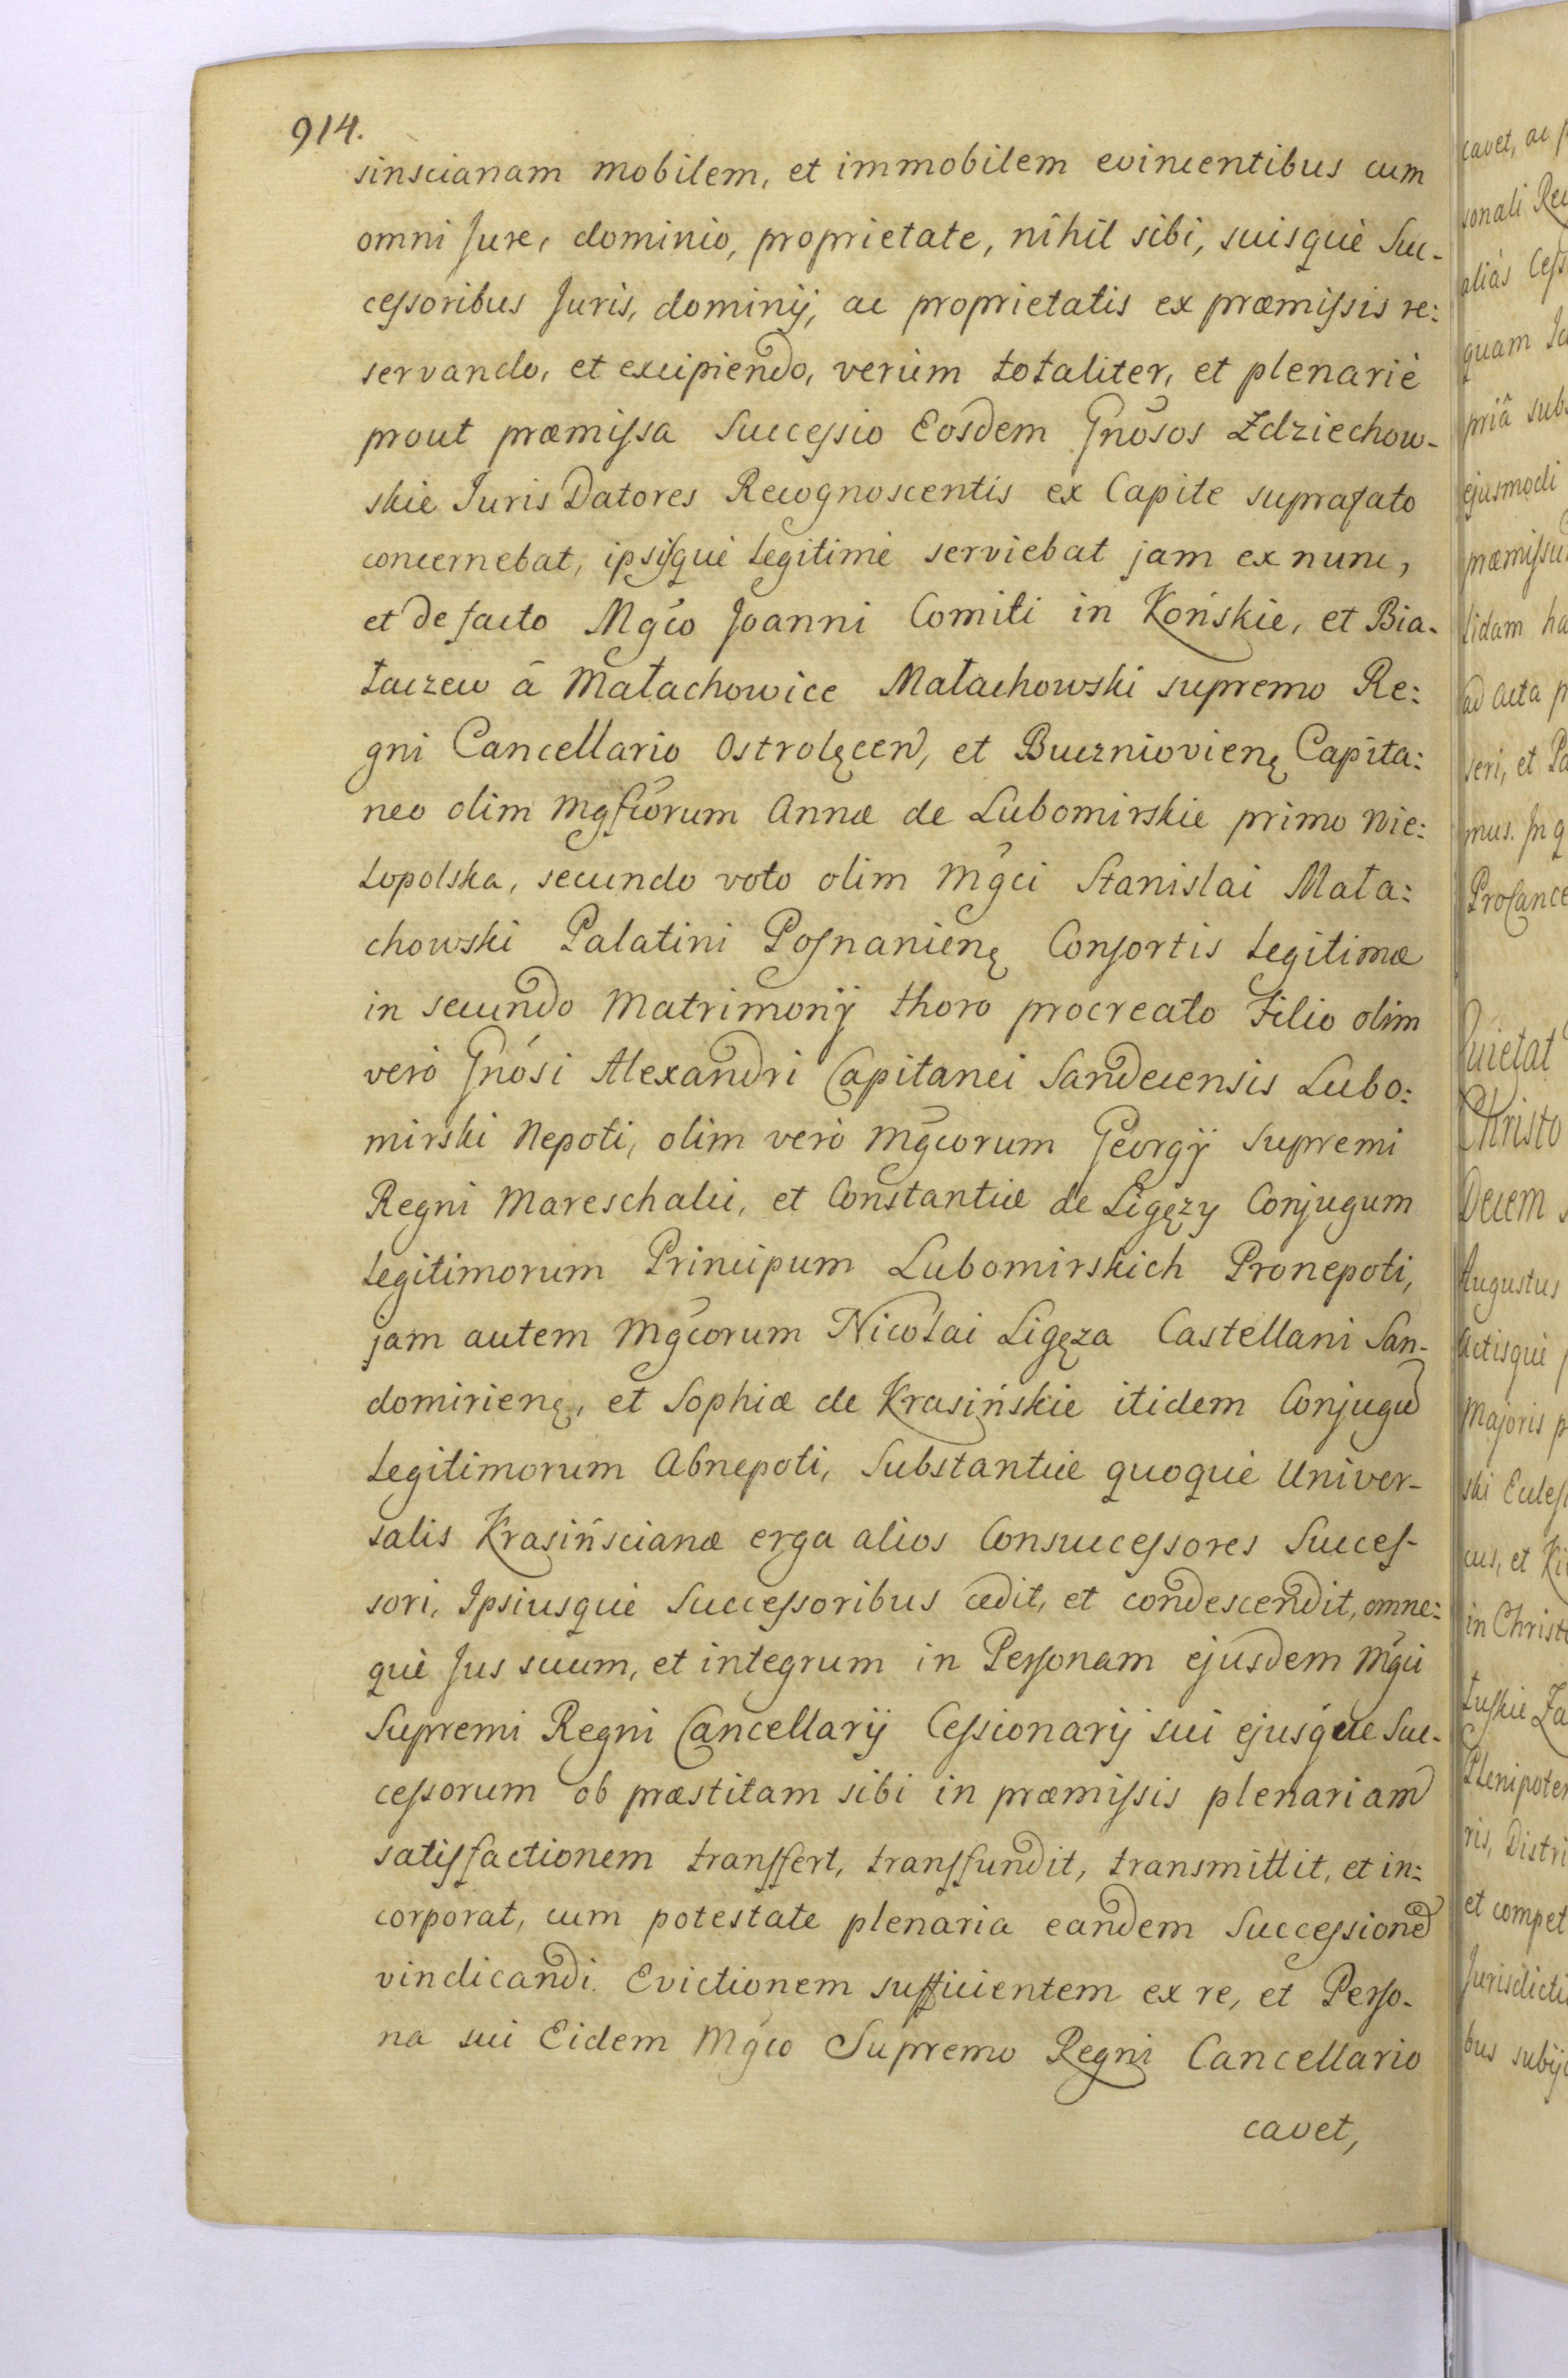 914.
sinscianam mobilem, et immobilem evincentibus cum
omni Jure, dominio, proprietate, nihil sibi, suisquè Suc-
cessoribus Juris, dominij, ac proprietatis ex præmissis re:
servando, et excipiendo, verùm totaliter, et plenariè
prout præmissa Successio Eosdem Gnosos Zdziechow-
skie Juris Datores Recognoscentis ex Capite suprafato
concernebat, ipsisquè legitimè serviebat jam ex nunc,
et de facto Mgco Joanni Comiti in Końskie, et Bia-
łaczew â Małachowice Małachowski supremo Re:
gni Cancellario Ostrolęcen, et Buczniovienę Capita:
neo olim Mgficorum Annæ de Lubomirskie primo Wie:
lopolska, secundo voto olim Mgci Stanislai Mała:
chowski Palatini Posnanienę Consortis legitimæ
in secundo Matrimonij thoro procreato Filio olim
verò Gnosi Alexandri Capitanei Sandecensis Lubo:
mirski Nepoti, olim verò Mgcorum Georgij Supremi
Regni Mareschalci, et Constantiæ de Ligęzy Conjugum
legitimorum Principum Lubomirskich Pronepoti,
jam autem Mgcorum Nicolai Ligęza Castellani San-
domirienę, et Sophiæ de Krasińskie itidem Conjugu
legitimorum Abnepoti, Substantiæ quoquè Univer-
salis Krasińscianæ erga alios Consuccessores Succes-
sori, Ipsiusquè Successoribus cedit, et condescendit, omne:
què Jus suum, et integrum in Personam ejusdem Mgci
Supremi Regni Cancellarij Cessionarij sui ejusque Suc-
cessorum ob præstitam sibi in præmissis plenariam
satisfactionem transfert, transfundit, transmittit, et in:
corporat, cum potestate plenaria eandem Successione
vindicandi. Evictionem sufficientem ex re, et Perso-
na sui Eidem Mgco Supremo Regni Cancellario
cavet,
cavet, ac
sonali
aliàs
quam
priâ
ejusmodi
lidam
ad acta
seri, et
mus. In
Quietat
Christo
Decem
Augustus
Actisquè
Majoris
ski
cus, et
in
et